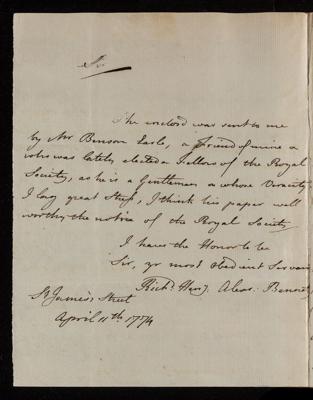 Sir
The enclosd was sent to me
by Mr Benson Earle, a friend of mine &
who was lately elected a Fellow of the Royal
Society, as he is a Gentleman on whose Veracity
I lay great Stress, I think his paper well
worthy the notice of the Royal Society
I have the Honor to be
Sir, yr most obedient Servant
Richd. Henry Alexr. Bennet
St James's Street
April 11th 1774